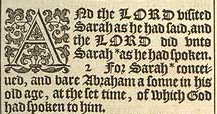 AND the LORD visited
Sarah as he had said, and
the LORD did vnto
Sarah *as he had spoken.
2 For Sarah* concei-
ued, and bare Abraham a sonne in his
old age, at the set time, of which God
had spoken to him.